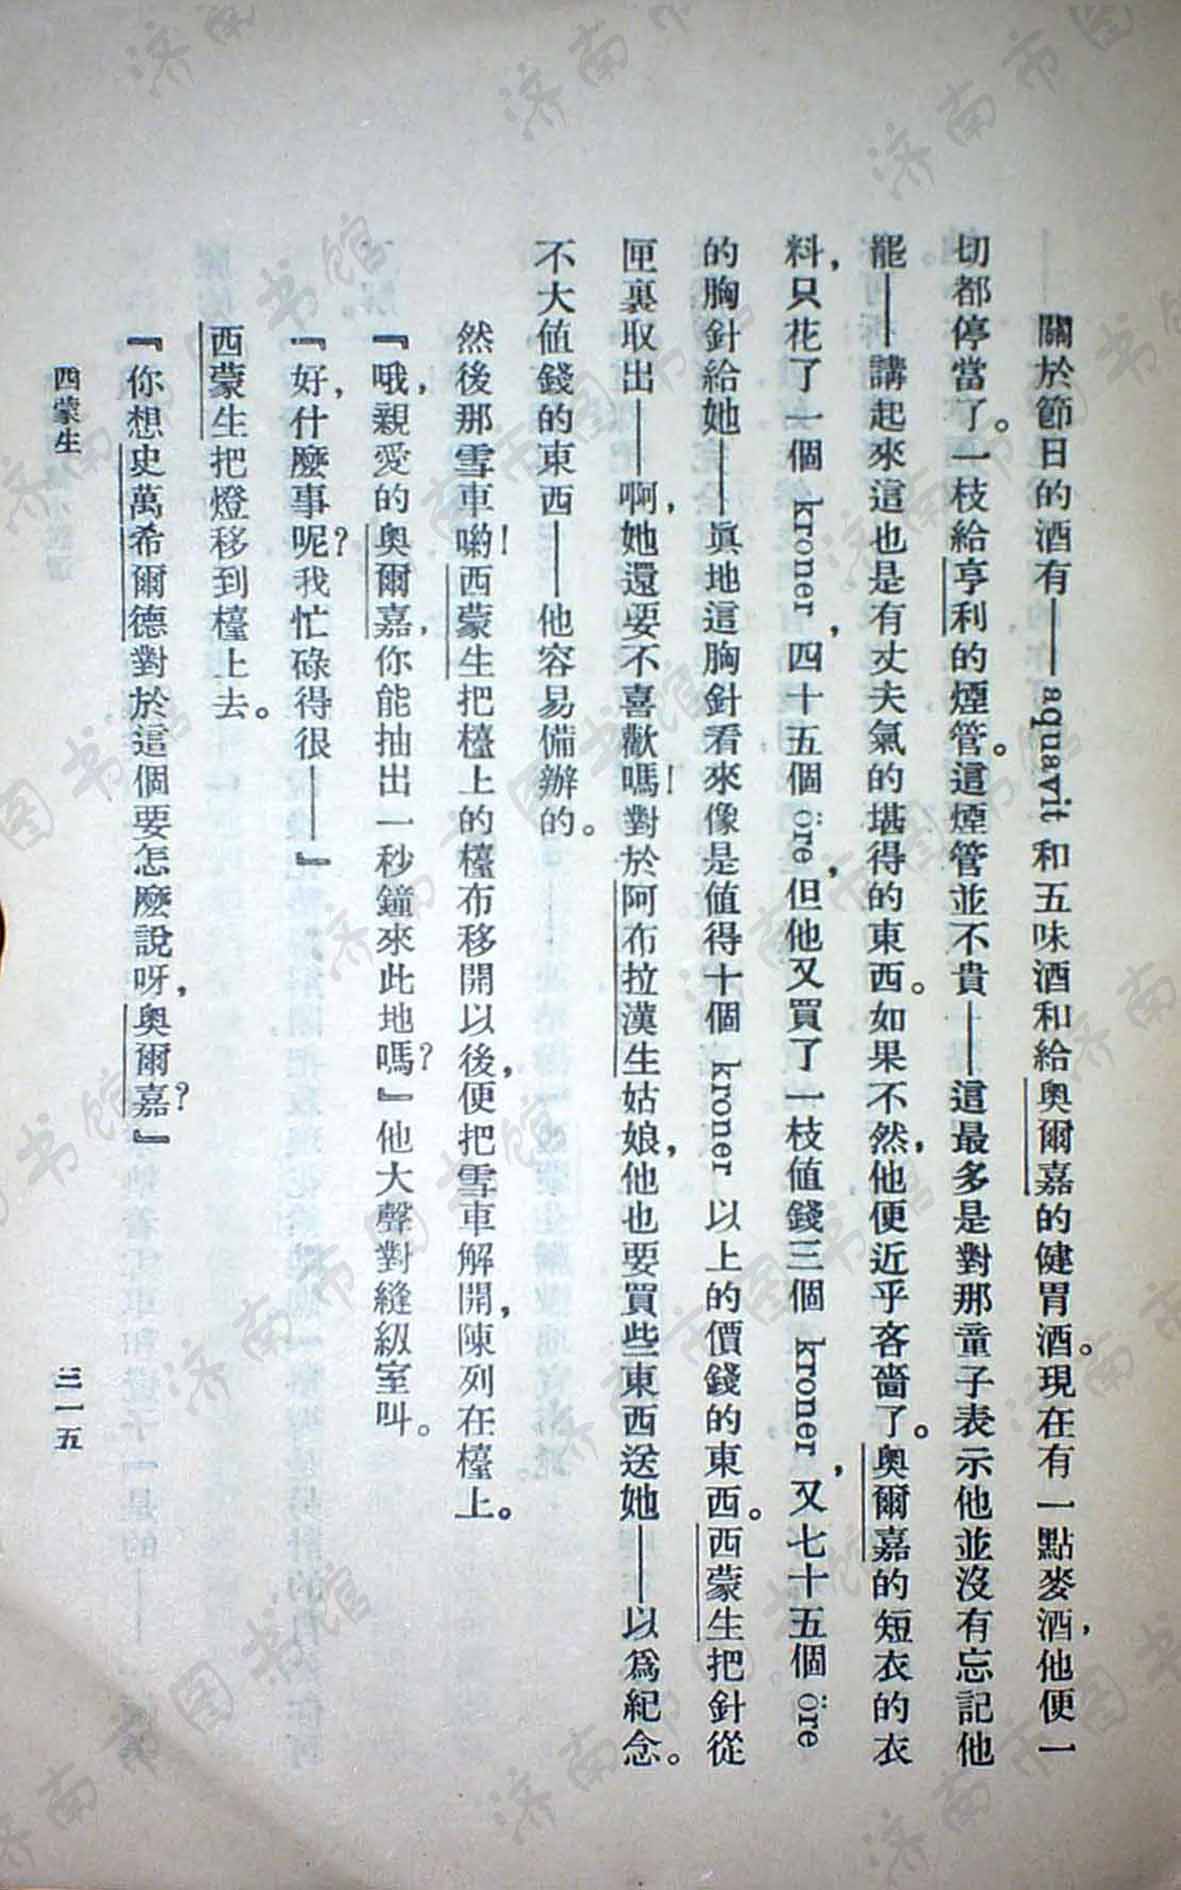 關於節日的酒有——aquavit 和五味酒和給奧爾嘉的健胃酒。現在有一點麥酒，他便一
切都停當了。一枝給亨利的煙管。這煙管並不貴——這最多是對那童子表示他並沒有忘記他
罷——講起來這也是有丈夫氣的堪得的東西。如果不然，他便近乎吝嗇了。奧爾嘉的短衣的衣
料，只花了一個 kroner，四十五個 öre，但他又買了一枝值錢三個 kroner，又七十五個 öre
的胸針給她——眞地這胸針看來像是值得十個 kroner 以上的價錢的東西。西蒙生把針從
匣裏取出——啊，她還要不喜歡嗎！對於阿布拉漢生姑娘，他也要買些東西送她——以爲紀念。
不大值錢的東西——他容易備辦的。
然後那雪車喲！西蒙生把檯上的檯布移開以後，便把雪車解開，陳列在檯上。
『哦，親愛的奧爾嘉，你能抽出一秒鐘來此地嗎？』他大聲對縫級室叫。
『好，什麼事呢？我忙碌得很——』
西蒙生把燈移到檯上去。
『你想史萬希爾德對於這個要怎麼說呀，奧爾嘉？』
西蒙生
三一五
济南市图书馆